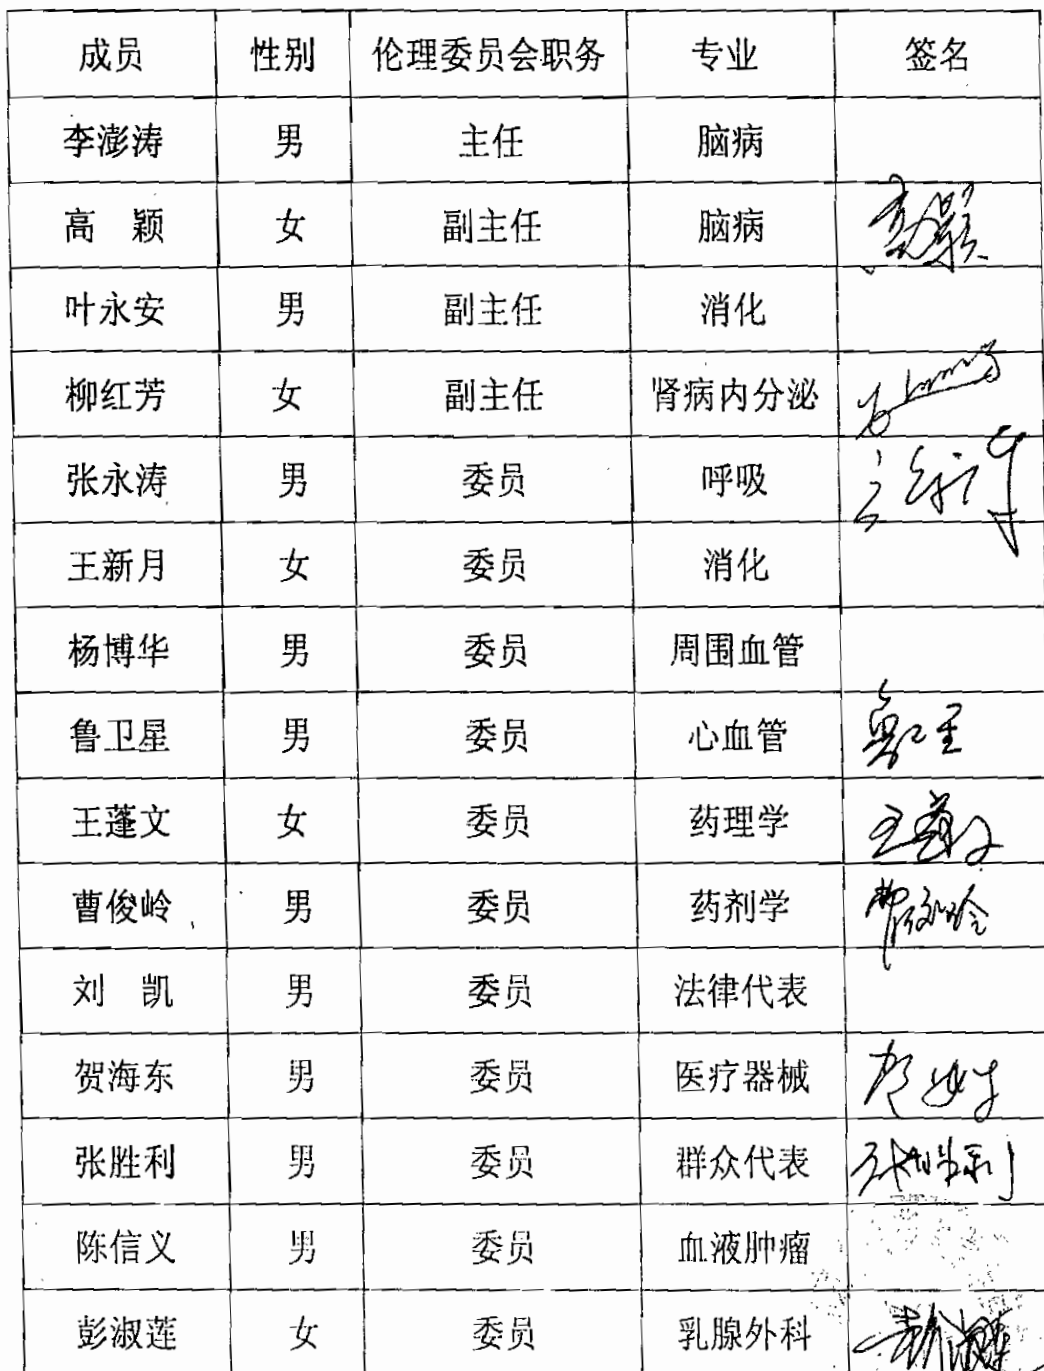 成员 性别 伦理委员会职务 专业 签名
李澎涛 男 主任 脑病
高 颖 女 副主任 脑病 高颖
叶永安 男 副主任 消化
柳红芳 女 副主任 肾病内分泌
张永涛 男 委员 呼吸
王新月 女 委员 消化
杨博华 男 委员 周围血管
鲁卫星 男 委员 心血管 鲁卫星
王蓬文 女 委员 药理学 王蓬文
曹俊岭 男 委员 药剂学 曹俊岭
刘 凯 男 委员 法律代表
贺海东 男 委员 医疗器械
张胜利 男 委员 群众代表 张胜利
陈信义 男 委员 血液肿瘤
彭淑莲 女 委员 乳腺外科 彭淑莲